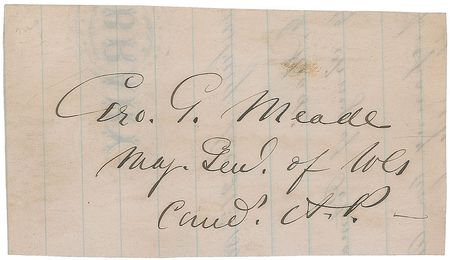 Geo. G. Meade
Maj. Genl. of Vols
Comd. A. P.